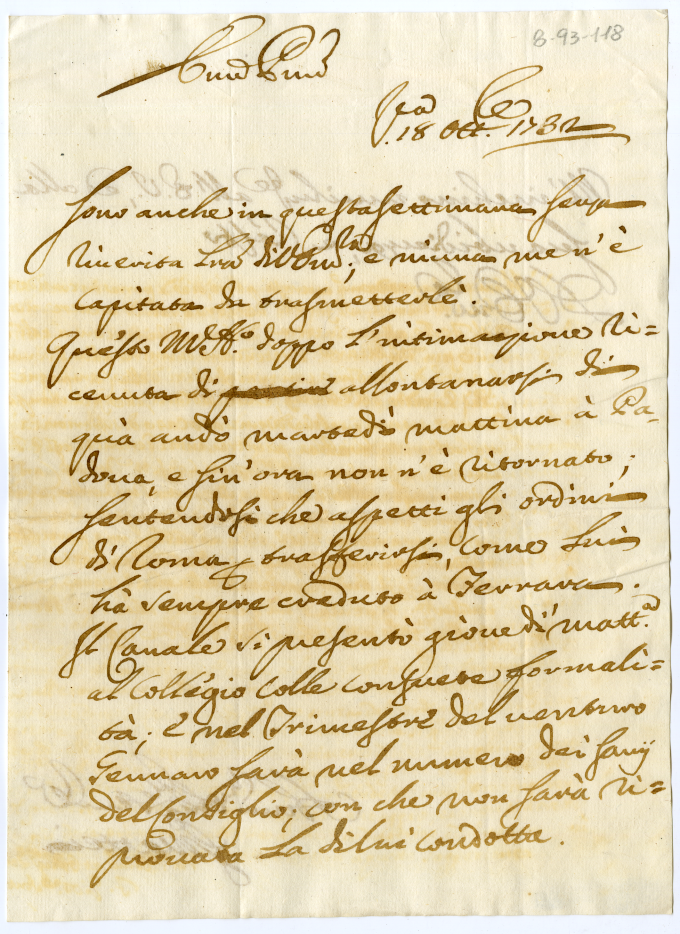 8-93-118
18 Ott. 1732
Sono anche in questa settimana senza
riverita Lrã di V. Em.za, e niuna me n'è
capitata da trasmetterle.
Questo M.r doppo l'intimazione ri=
cevuta di allontanarsi di
quà andò martedì mattina à Pa-
dova, e sin'ora non n'è ritornato;
sentendosi che aspetti gli ordini
di Roma p trasferirsi, come Lui
hà sempre creduto à Ferrara.
Il Canale si presentò giovedì matt.a
al Collegio colle consuete formali-
tà; e nel Trimestre del venturo
Gennaro sarà nel numero dei Savij
del Consiglio; con che non sarà ri=
provata la di lui condotta.